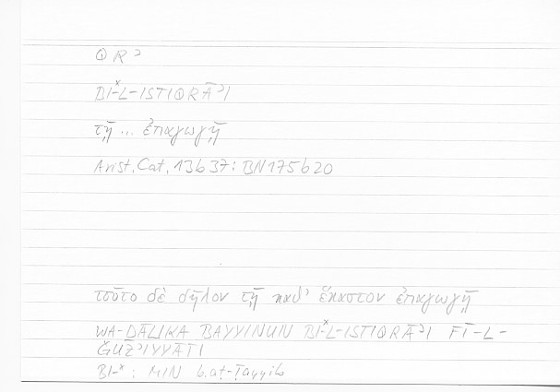 QRʾ
BI-ˣL-ISTIQRĀʾI
τῇ ... ἐπαγωγῇ
Arist. Cat. 13b37: BN175b20
τοῦτο δὲ δῆλον τῇ καθ' ἕκαστον ἐπαγωγῇ
WA-ḎĀLIKA BAYYINUN BI-ˣL-ISTIQRĀʾI FĪ-L-
ǦUZʾIYYĀTI
BI-ˣ: MIN b.aṭ-Ṭayyib